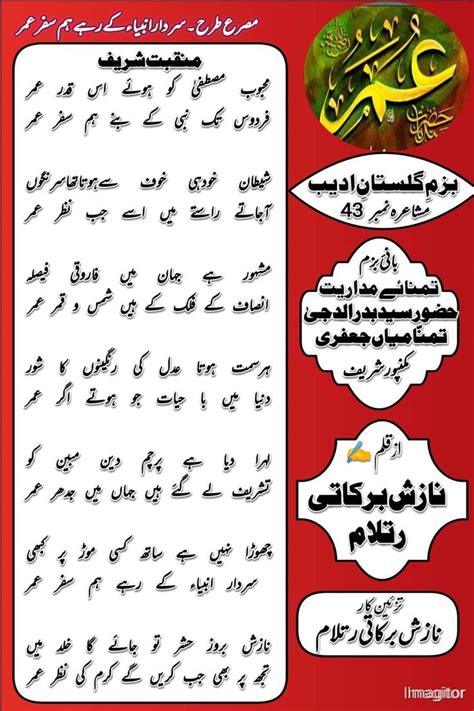 مصرع طرح۔ سردار انبیاء کے رہے ہم سفر عمر
منقبت شریف
محبوب مصطفیٰ کو ہوئے اس قدر عمر
فردوس تک نبی کے بنے ہم سفر عمر
شیطان خود ہی خوف سے ہوتا تھا سرنگوں
آ جاتے راستے میں اسے جب نظر عمر
مشہور ہے جہان میں فاروقی فیصلہ
انصاف کے فلک کے ہیں شمس و قمر عمر
ہر سمت ہوتا عدل کی رنگینوں کا شور
دنیا میں با حیات جو ہوتے اگر عمر
لہرا دیا ہے پرچم دین مبین کو
تشریف لے گئے ہیں جہاں میں جدھر عمر
چھوڑا نہیں ہے ساتھ کسی موڑ پر کبھی
سردار انبیاء کے رہے ہم سفر عمر
نازش بروز حشر تو جائے گا خلد میں
تجھ پر بھی جب کریں گے کرم کی نظر عمر
حضرت
عمر
بزم گلستانِ ادیب
مشاعرہ نمبر 43
بانیٔ بزم
تمنائے مداریت
حضور سید بدر الدجیٰ
تمنا میاں جعفری
مکنپور شریف
از قلم ✍
نازش برکاتی
رتلام
تزئین کار
نازش برکاتی رتلام
Imagitor